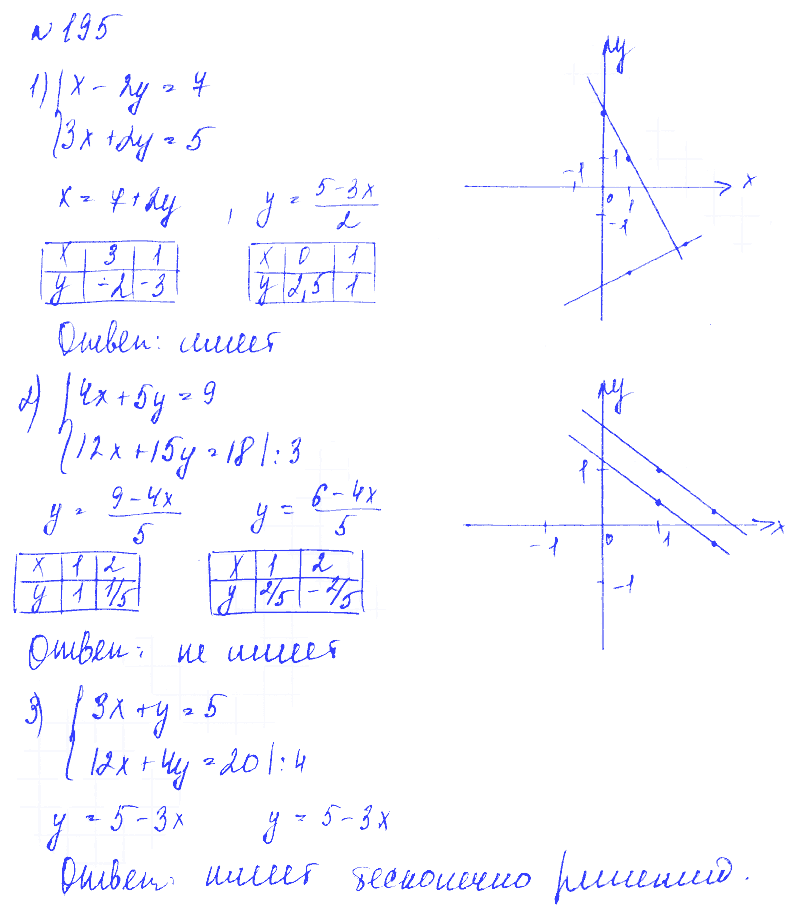 № 195
1) { x - 2y = 7
3x + 2y = 5
x = 7 + 2y , y = (5 - 3x)/2
x | 3 | 1
y | -2 | -3
x | 0 | 1
y | 2,5 | 1
Ответ: имеет
y
1
-1
0
1
x
-1
2) { 4x + 5y = 9
12x + 15y = 18 | : 3
y = (9 - 4x)/5 y = (6 - 4x)/5
x | 1 | 2
y | 1 | 1/5
x | 1 | 2
y | 2/5 | -2/5
Ответ: не имеет
y
1
-1
0
1
x
-1
3) { 3x + y = 5
12x + 4y = 20 | : 4
y = 5 - 3x y = 5 - 3x
Ответ: имеет бесконечно решений.